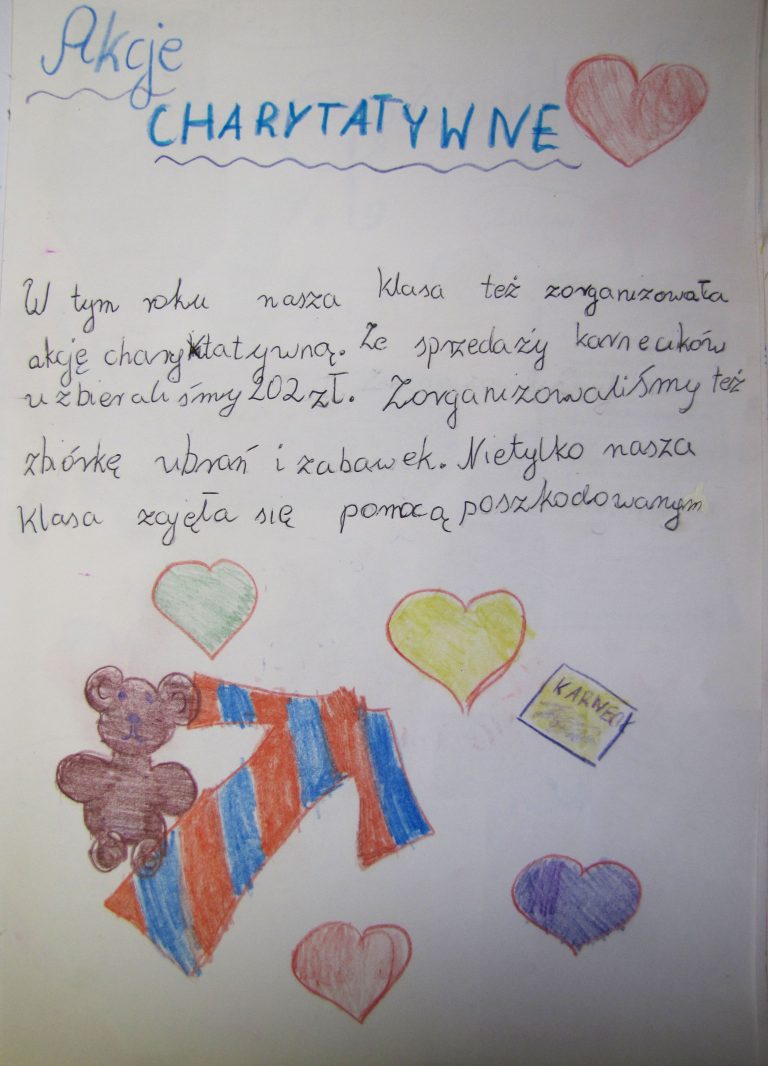 Akcje
CHARYTATYWNE
W tym roku nasza klasa też zorganizowała
akcję charyktatywną. Ze sprzedaży karnecików
uzbieraliśmy 202 zł. Zorganizowaliśmy też
zbiórkę ubrań i zabawek. Nietylko nasza
klasa zajęła się pomocą poszkodowanym
KARNECIK